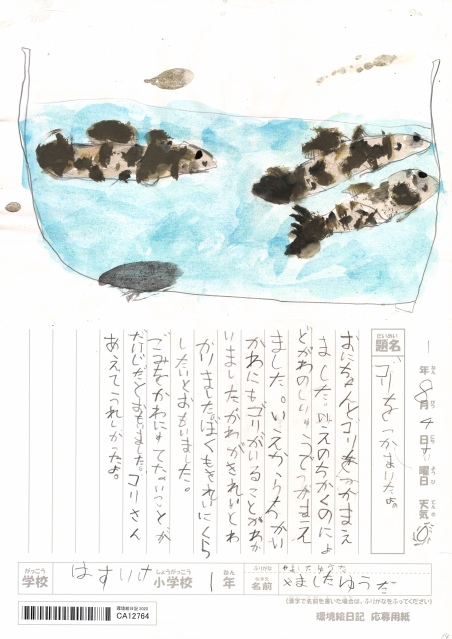 1年8月4日 曜日 天気
ねん がつ にち ようび てんき
だいめい
題名
ゴリをつかまえたよ。
おにちゃんとゴリをつかまえ
ました。いえのちかくのによ
どがわのしりゅうでつかまえ
ました。いえからちかい
かわにもゴリがいることがわか
いましたかわがきれいとわ
かりました。ぼくもきれいにくら
したいとおもいました。
ごみをかわにすてないことが
だいじだとおもいました。ゴリさん
あえてうれしかったよ。
がっこう
学校
はすいけ
しょうがっこう
小学校
1
ねん
年
ふりがな
やましたゆうた
なまえ
名前
やましたゆうた
(漢字で名前を書いた場合は、ふりがなをふってください)
環境絵日記2020
CA12764
環境絵日記 応募用紙